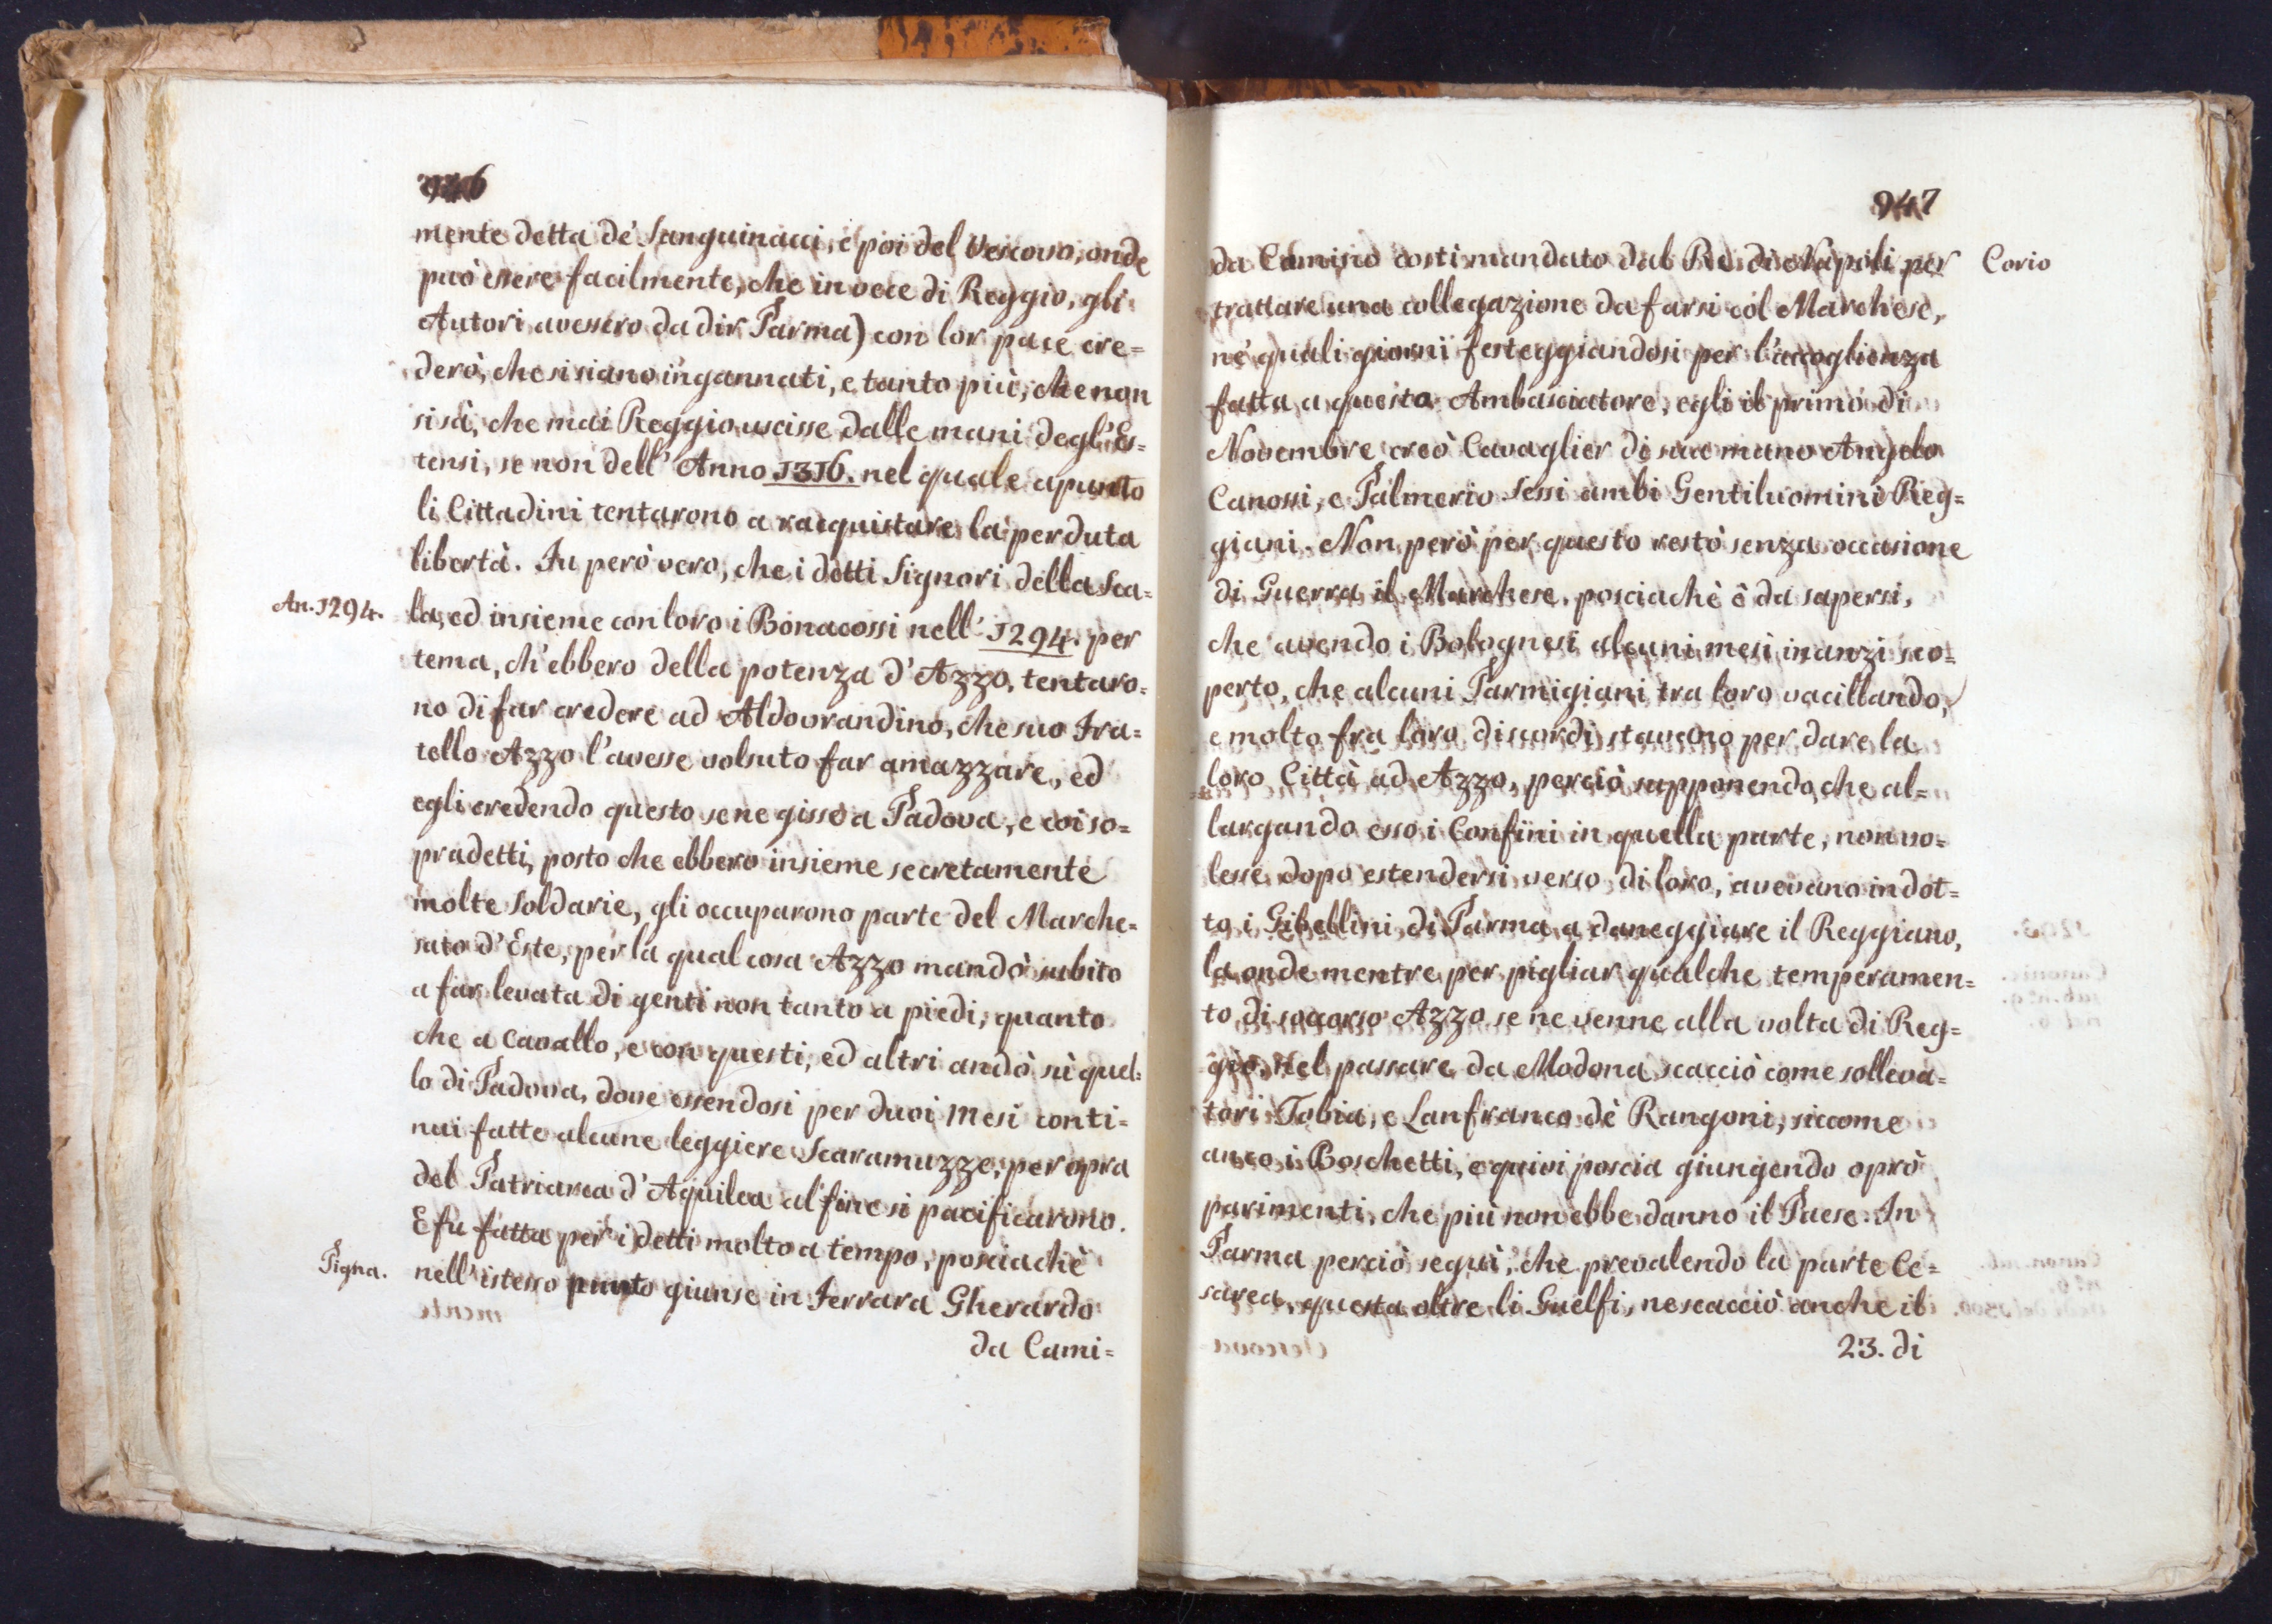 946
mente detta de' Sanguinacci, e poi del Vescovo, onde
può essere facilmente, che in vece di Reggio, gli
Autori avessero da dir Parma) con lor pace cre=
derò, che si siano ingannati, e tanto più, che non
si sà, che mai Reggio uscisse dalle mani degl'Es=
tensi, se non dell' Anno 1316. nel quale apunto
li Cittadini tentarono a racquistare la perduta
libertà. Fu però vero, che i detti Signori della Sca=
An. 1294.
la, ed insieme con loro i Bonacossi nell' 1294. per
tema, ch'ebbero della potenza d'Azzo, tentaro=
no di far credere ad Aldovrandino, che suo Fra=
tello Azzo l'avesse volsuto far amazzare, ed
egli credendo questo se ne gisse a Padova, e coi so=
pradetti, posto che ebbero insieme secretamente
molte Soldarie, gli occuparono parte del Marche=
sato d'Este, per la qual cosa Azzo mandò subito
a far levata di genti non tanto a piedi, quanto
che a Cavallo, e con questi, ed altri andò sù quel=
lo di Padova, dove essendosi per duoi Mesi conti=
nui fatte alcune leggiere Scaramuzze, per opra
del Patriarca d'Aquilea al fine si pacificarono.
E fu fatta per i detti molto a tempo, posciachè
Pigna.
nell'istesso punto giunse in Ferrara Gherardo
da Cami=
947
da Camino costì mandato dal Re di Napoli per
Corio
trattare una collegazione da farsi col Marchese,
ne' quali giorni festeggiandosi per l'accoglienza
fatta a questo Ambasciatore, egli il primo di
Novembre creò Cavaglier di sua mano Angelo
Canossi, e Palmerio Sessi ambi Gentiluomini Reg=
giani. Non però per questo restò senza occasione
di Guerra il Marchese, posciachè è da sapersi,
che avendo i Bolognesi alcuni mesi inanzi sco=
perto, che alcuni Parmigiani tra loro vacillando,
e molto fra loro discordi stavano per dare la
loro Città ad Azzo, perciò supponendo, che al=
largando esso i Confini in quella parte, non vo=
lesse dopo estendersi verso di loro, avevano indot=
to i Gibellini di Parma a daneggiare il Reggiano,
la onde mentre per pigliar qualche temperamen=
to di soccorso Azzo se ne venne alla volta di Reg=
gio, nel passare da Modona scacciò come solleva=
tori Tobia, e Lanfranco de' Rangoni, siccome
anco i Boschetti, e quivi poscia giungendo oprò
parimenti, che più non ebbe danno il Paese. In
Parma perciò seguì, che prevalendo la parte Ce=
sarea, questa oltre li Guelfi, ne scacciò anche il
23. di